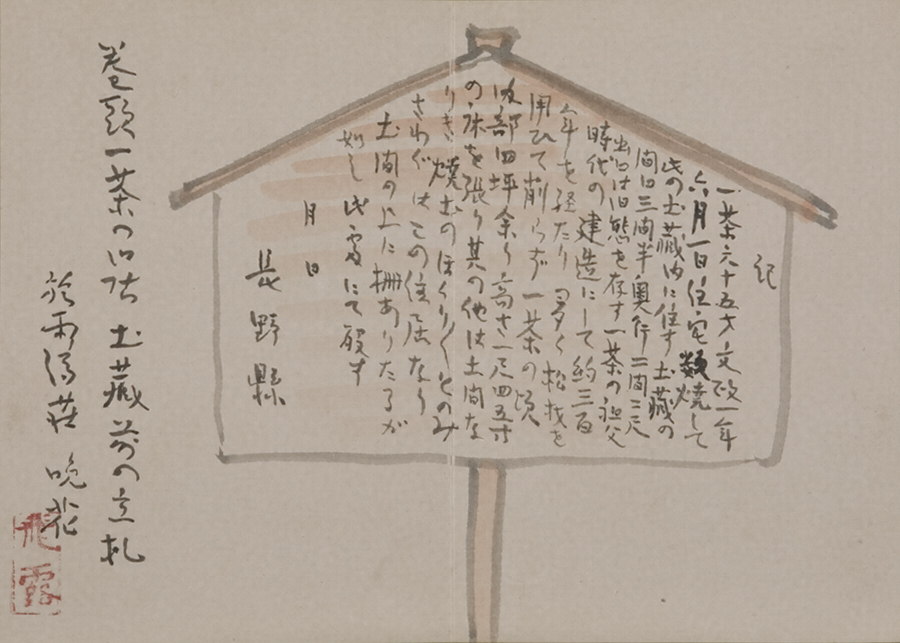 記
一茶六十五才文政一年
六月一日住宅類焼して
此の土蔵内に住す土蔵の
間口三間半奥行二間二尺
出口は旧態を存す一茶の祖父
時代の建造にして約三百
年を経たり 多く松材を
用ひて削らず一茶の頃
内部四坪余り高さ一尺四五寸
の床を張り其の他は土間な
りき 焼土のほくり〳〵とのみ
さわぐはこの住居なり
土間の上に棚ありたるが
如し此處にて歿す
月 日
長野縣
巻頭一茶の旧居 土蔵前の立札
於雨 荘 晩花